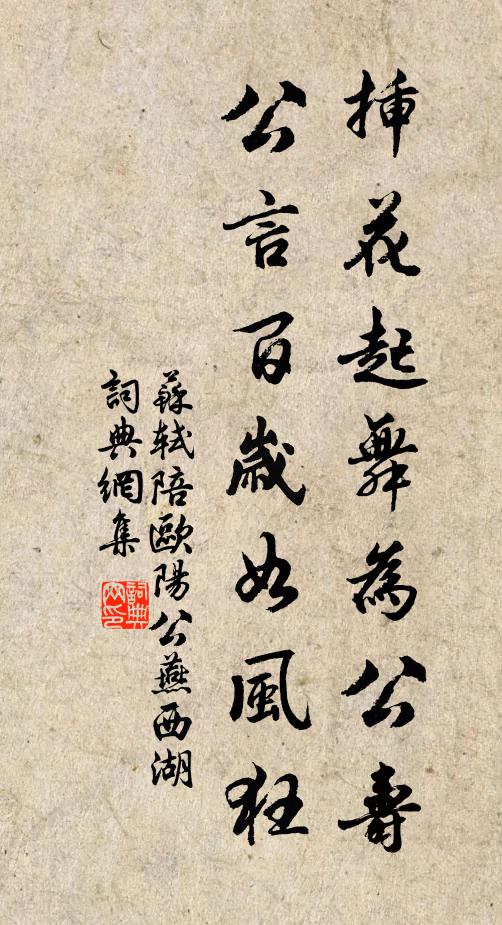 挿花起舞為公壽
公言百歲如風狂
蘇軾陪歐陽公燕西湖
詞典網集
詞典網印